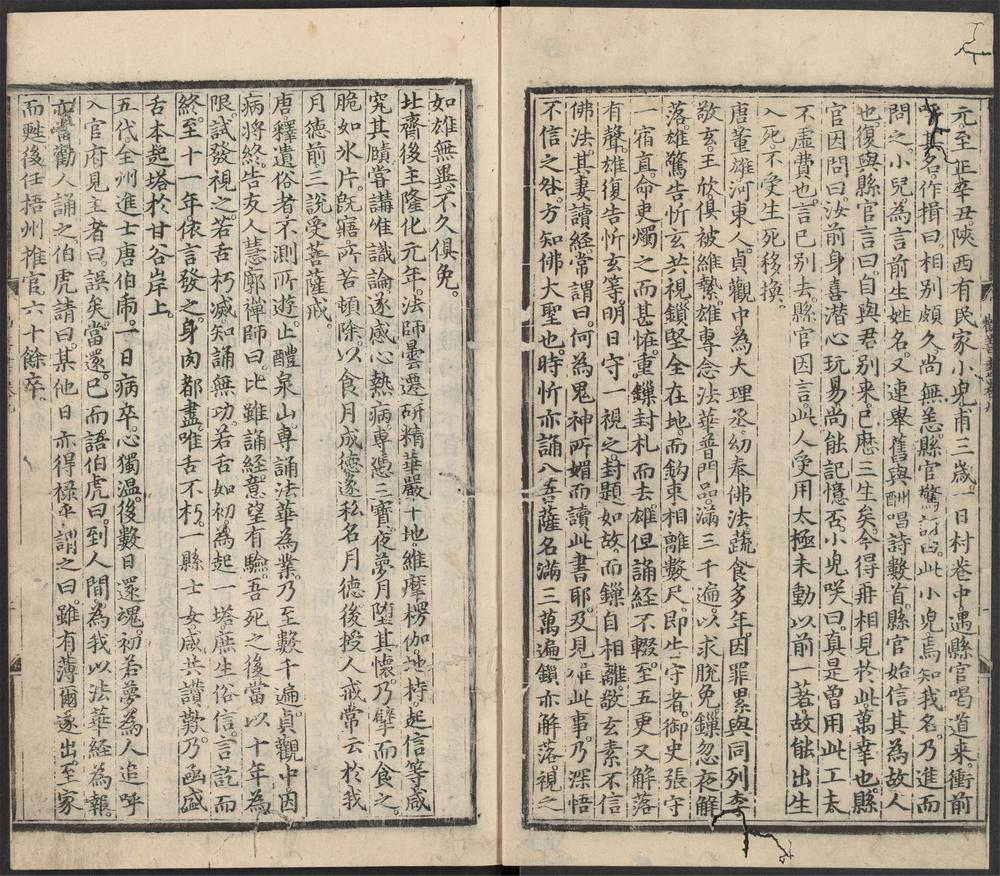 元至正辛丑。陝西有民家小兒甫三歲。一日村巷中。遇縣官喝道來。衝前
呼其名。作揖曰。相別頗久尚無恙。縣官驚訝曰。此小兒焉知我名。乃進而
問之。小兒為言前生姓名。又連舉舊與酬唱詩數首。縣官始信其為故人
也。復與縣官言曰。自與君別来。已歷三生矣。今得再相見於此。萬幸也。縣
官因問曰。汝前身喜潜心玩易。尚能記憶否。小兒咲曰。真是曽用此工太
不虛費也。言已別去。縣官因言。此人受用太極未動以前一著。故能出生
入死。不受生死移換。
唐董雄。河東人。貞觀中。為大理丞。幼奉佛法。蔬食多年。因罪累與同列李
敬玄。王忻俱被維縶。雄專念法華普門品。滿三千遍。以求脫免。鏁忽夜解
落。雄驚告忻玄共視。鏁堅全在地。而鈎朿相離數尺。即告守者。御史張守
一宿直。命吏燭之而甚怪。重鏁封札而去。雄但誦經不輟。至五更又解落
有聲。雄復告忻玄等。明日守一視之。封題如故。而鏁自相離。敬玄素不信
佛法。其妻讀經。常謂曰。何為鬼神所媚而讀此書耶。及見雄此事。乃深悟
不信之咎。方知佛大聖也。時忻亦誦八菩薩名。滿三萬遍。鏁亦解落。視之
如雄無異。不久俱免。
北齊後主隆化元年。法師曇遷。研精華嚴十地。維摩楞伽。地持。起信等。咸
究其賾。嘗講唯識論。遂感心熱病。專憑三寶。夜夢月墮其懷。乃擘而食之。
脆如氷片。旣寤。所苦頓除。以食月成德。遂私名月德。後授人戒。常云於我
月德前三說受菩薩戒。
唐。釋遺俗者。不測所遊。止醴泉山。專誦法華為業。乃至數千遍。貞觀中。因
病將終。告友人慧廓禪師曰。比雖誦經。意望有驗。吾死之後。當以十年為
限。試發視之。若舌朽滅。知誦無功。若舌如初。為起一塔。庶生俗信。言訖而
終。至十一年。依言發之。身肉都盡。唯舌不朽。一縣士女。咸共讃歎。乃函盛
舌本。起塔於甘谷岸上。
五代。全州進士唐伯虎。一日病卒。心獨温。後數日還魂。初若夢為人追呼
入官府。見主者曰。誤矣。當還。已而語伯虎曰。到人間為我以法華經為報。
亦當勸人誦之。伯虎請曰。某他日亦得祿乎。謂之曰。雖有薄爾。遂出。至家
而甦。後任梧州推官。六十餘卒。